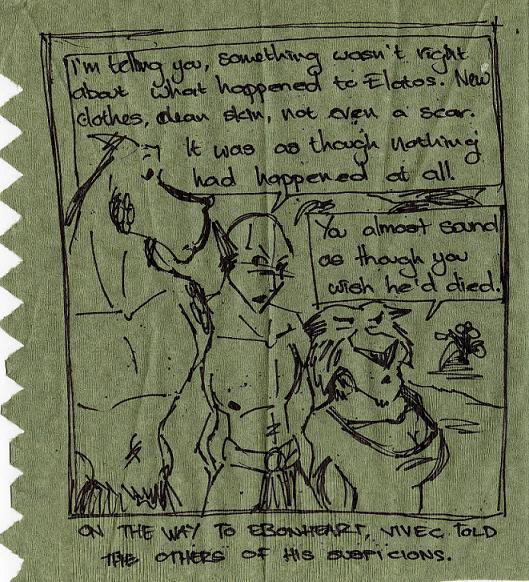 I'm telling you, something wasn't right
about what happened to Elatos. New
clothes, clean skin, not even a scar.
It was as though nothing
had happened at all.
You almost sound
as though you
wish he'd died.
ON THE WAY TO EBONHEART, VIVEC TOLD
THE OTHERS OF HIS SUSPICIONS.